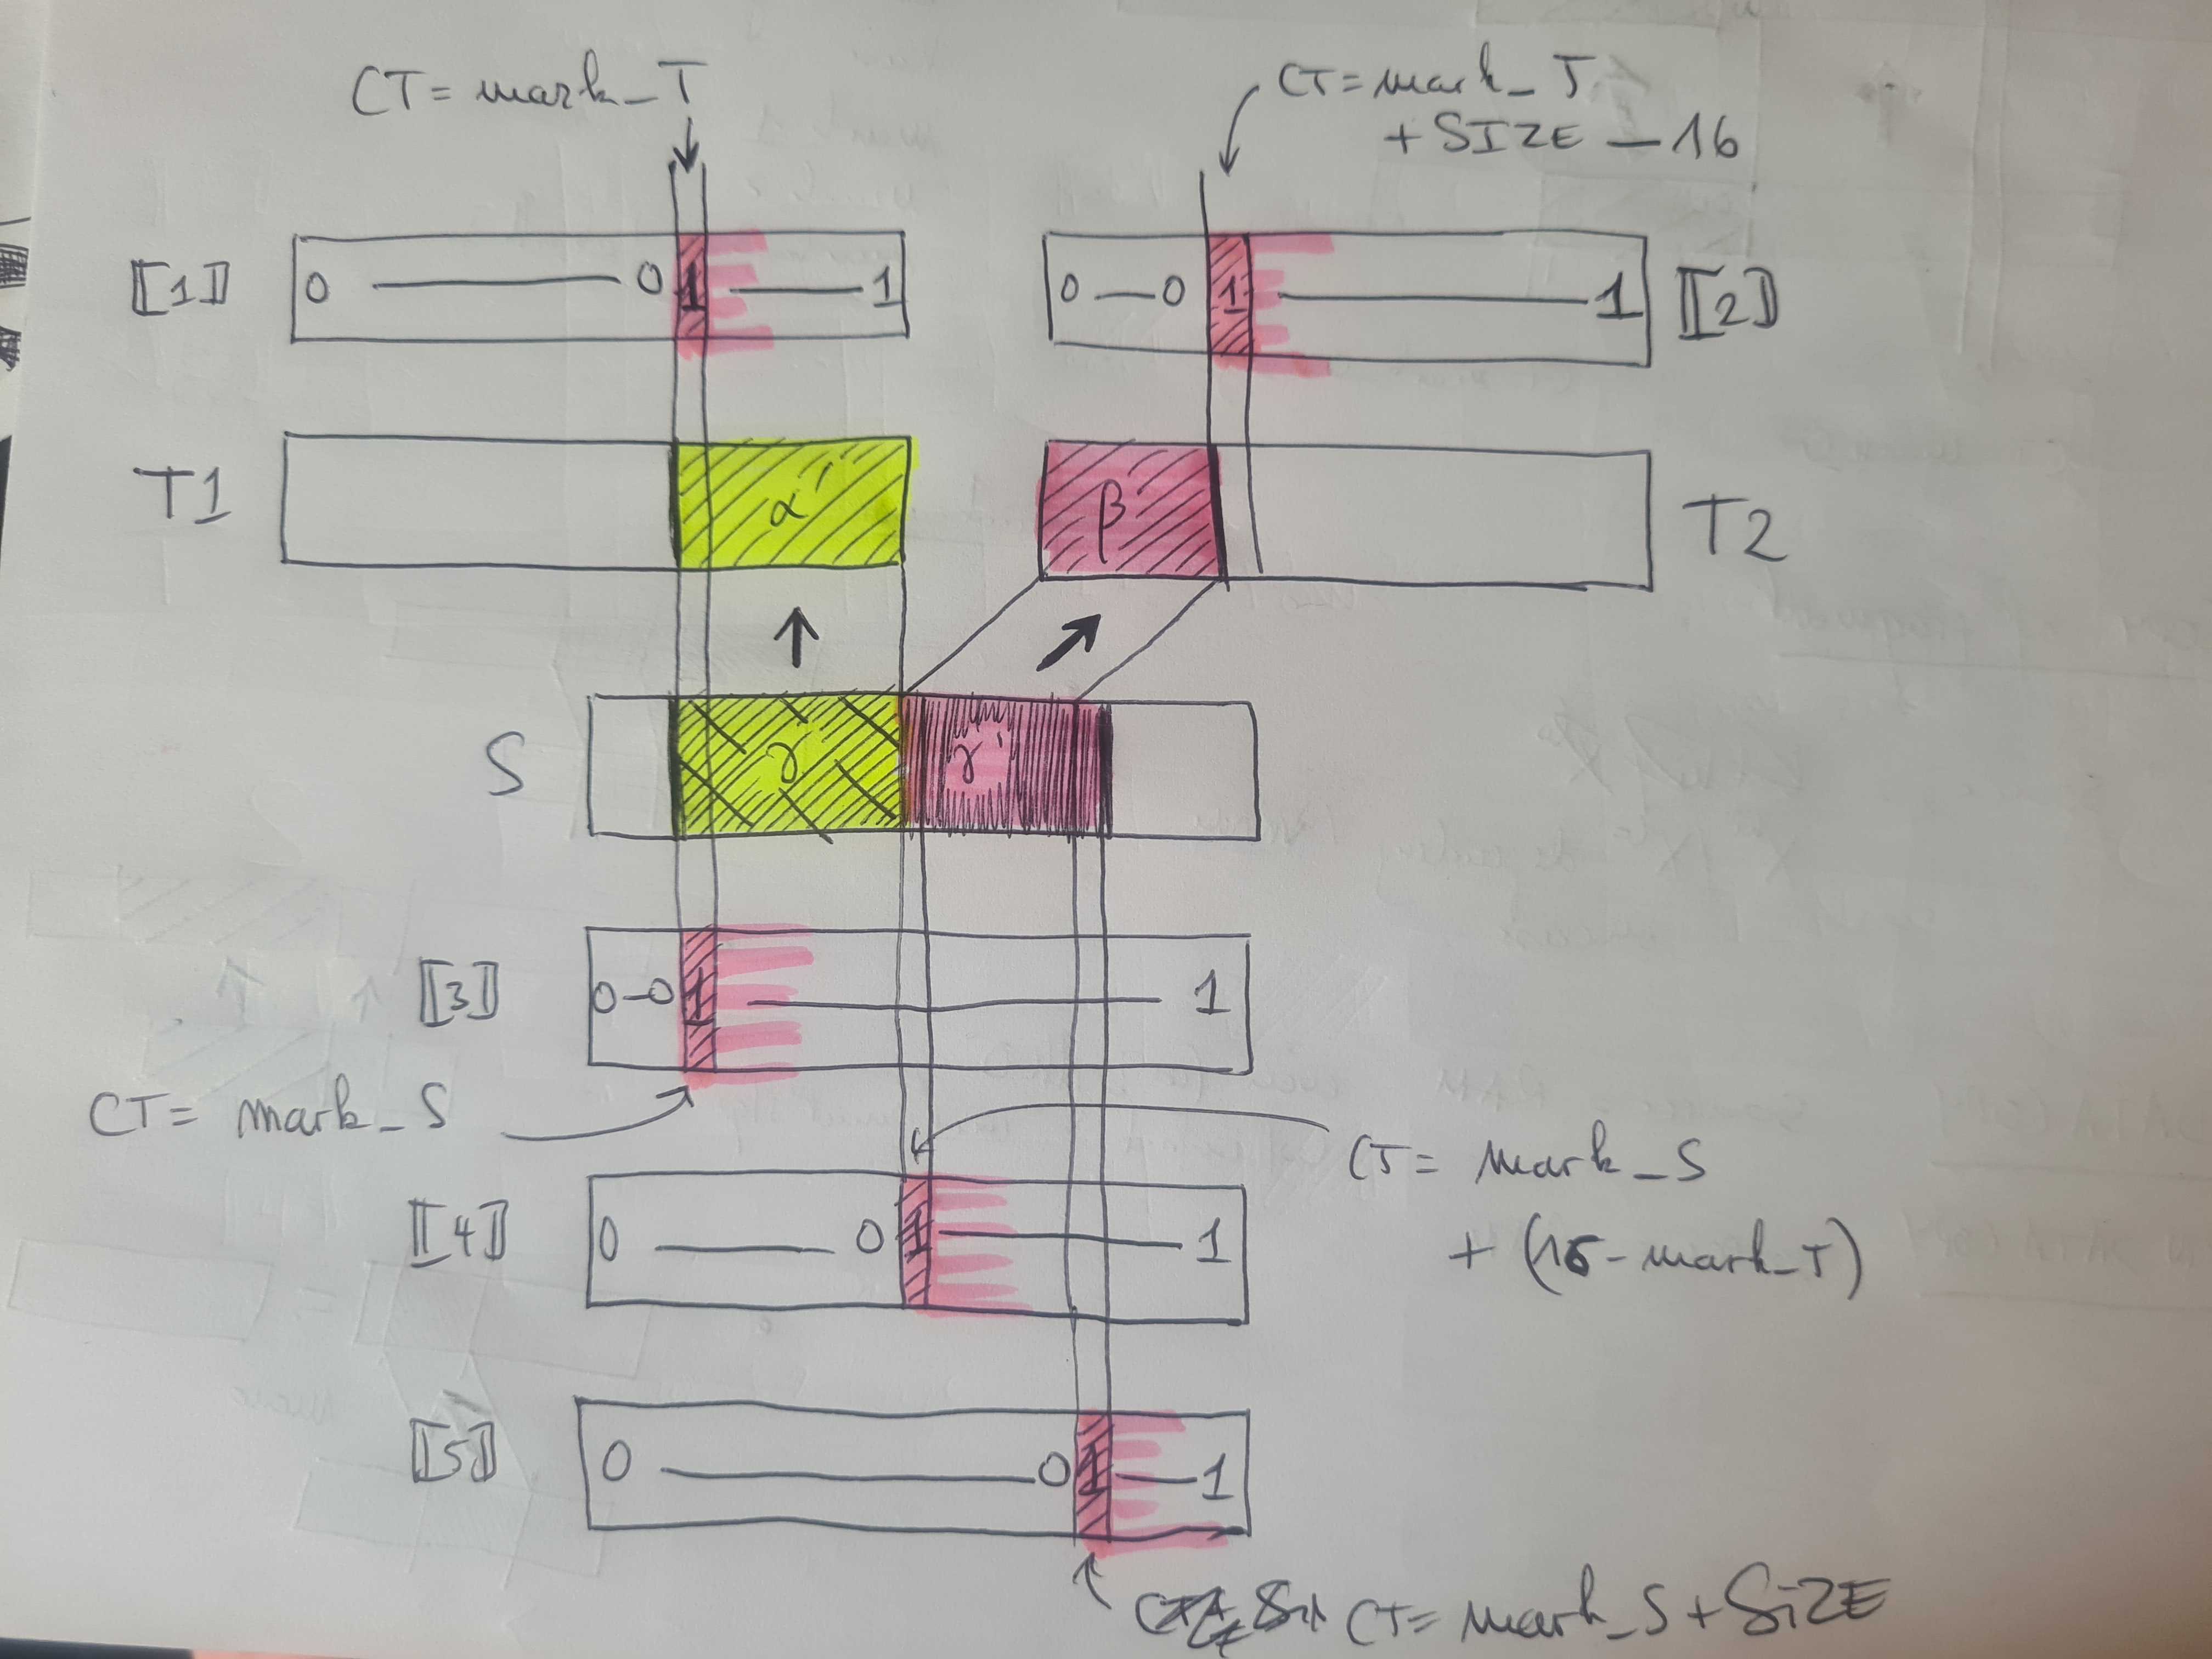 CT = mark_T
CT = mark_T
+ SIZE - 16
[1] 0 — 0 1 — 1
0 — 0 1 — 1 [2]
T1 α
β T2
S γ γ'
[3] 0 - 0 1 — 1
CT = mark_S
CT = mark_S
+ (16 - mark_T)
[4] 0 — 0 1 — 1
[5] 0 — 0 1 — 1
CT = mark_S + SiZE